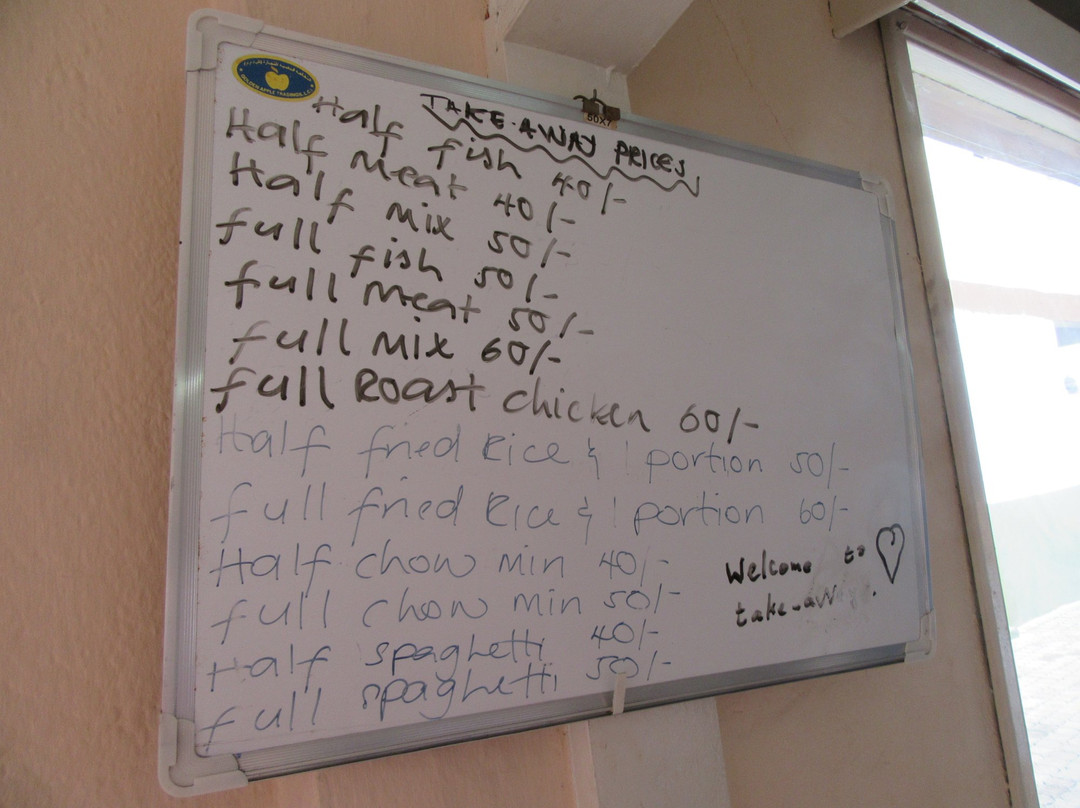 GOLDEN APPLE TRADING L.L.C
60X7
TAKE-AWAY PRICES
Half fish 40/-
Half Meat 40/-
Half Mix 50/-
full fish 50/-
full Meat 50/-
full Mix 60/-
full Roast chicken 60/-
Half fried Rice & 1 portion 50/-
full fried Rice & 1 portion 60/-
Half chow min 40/-
full chow min 50/-
Half spaghetti 40/-
full spaghetti 50/-
Welcome to
take-away.